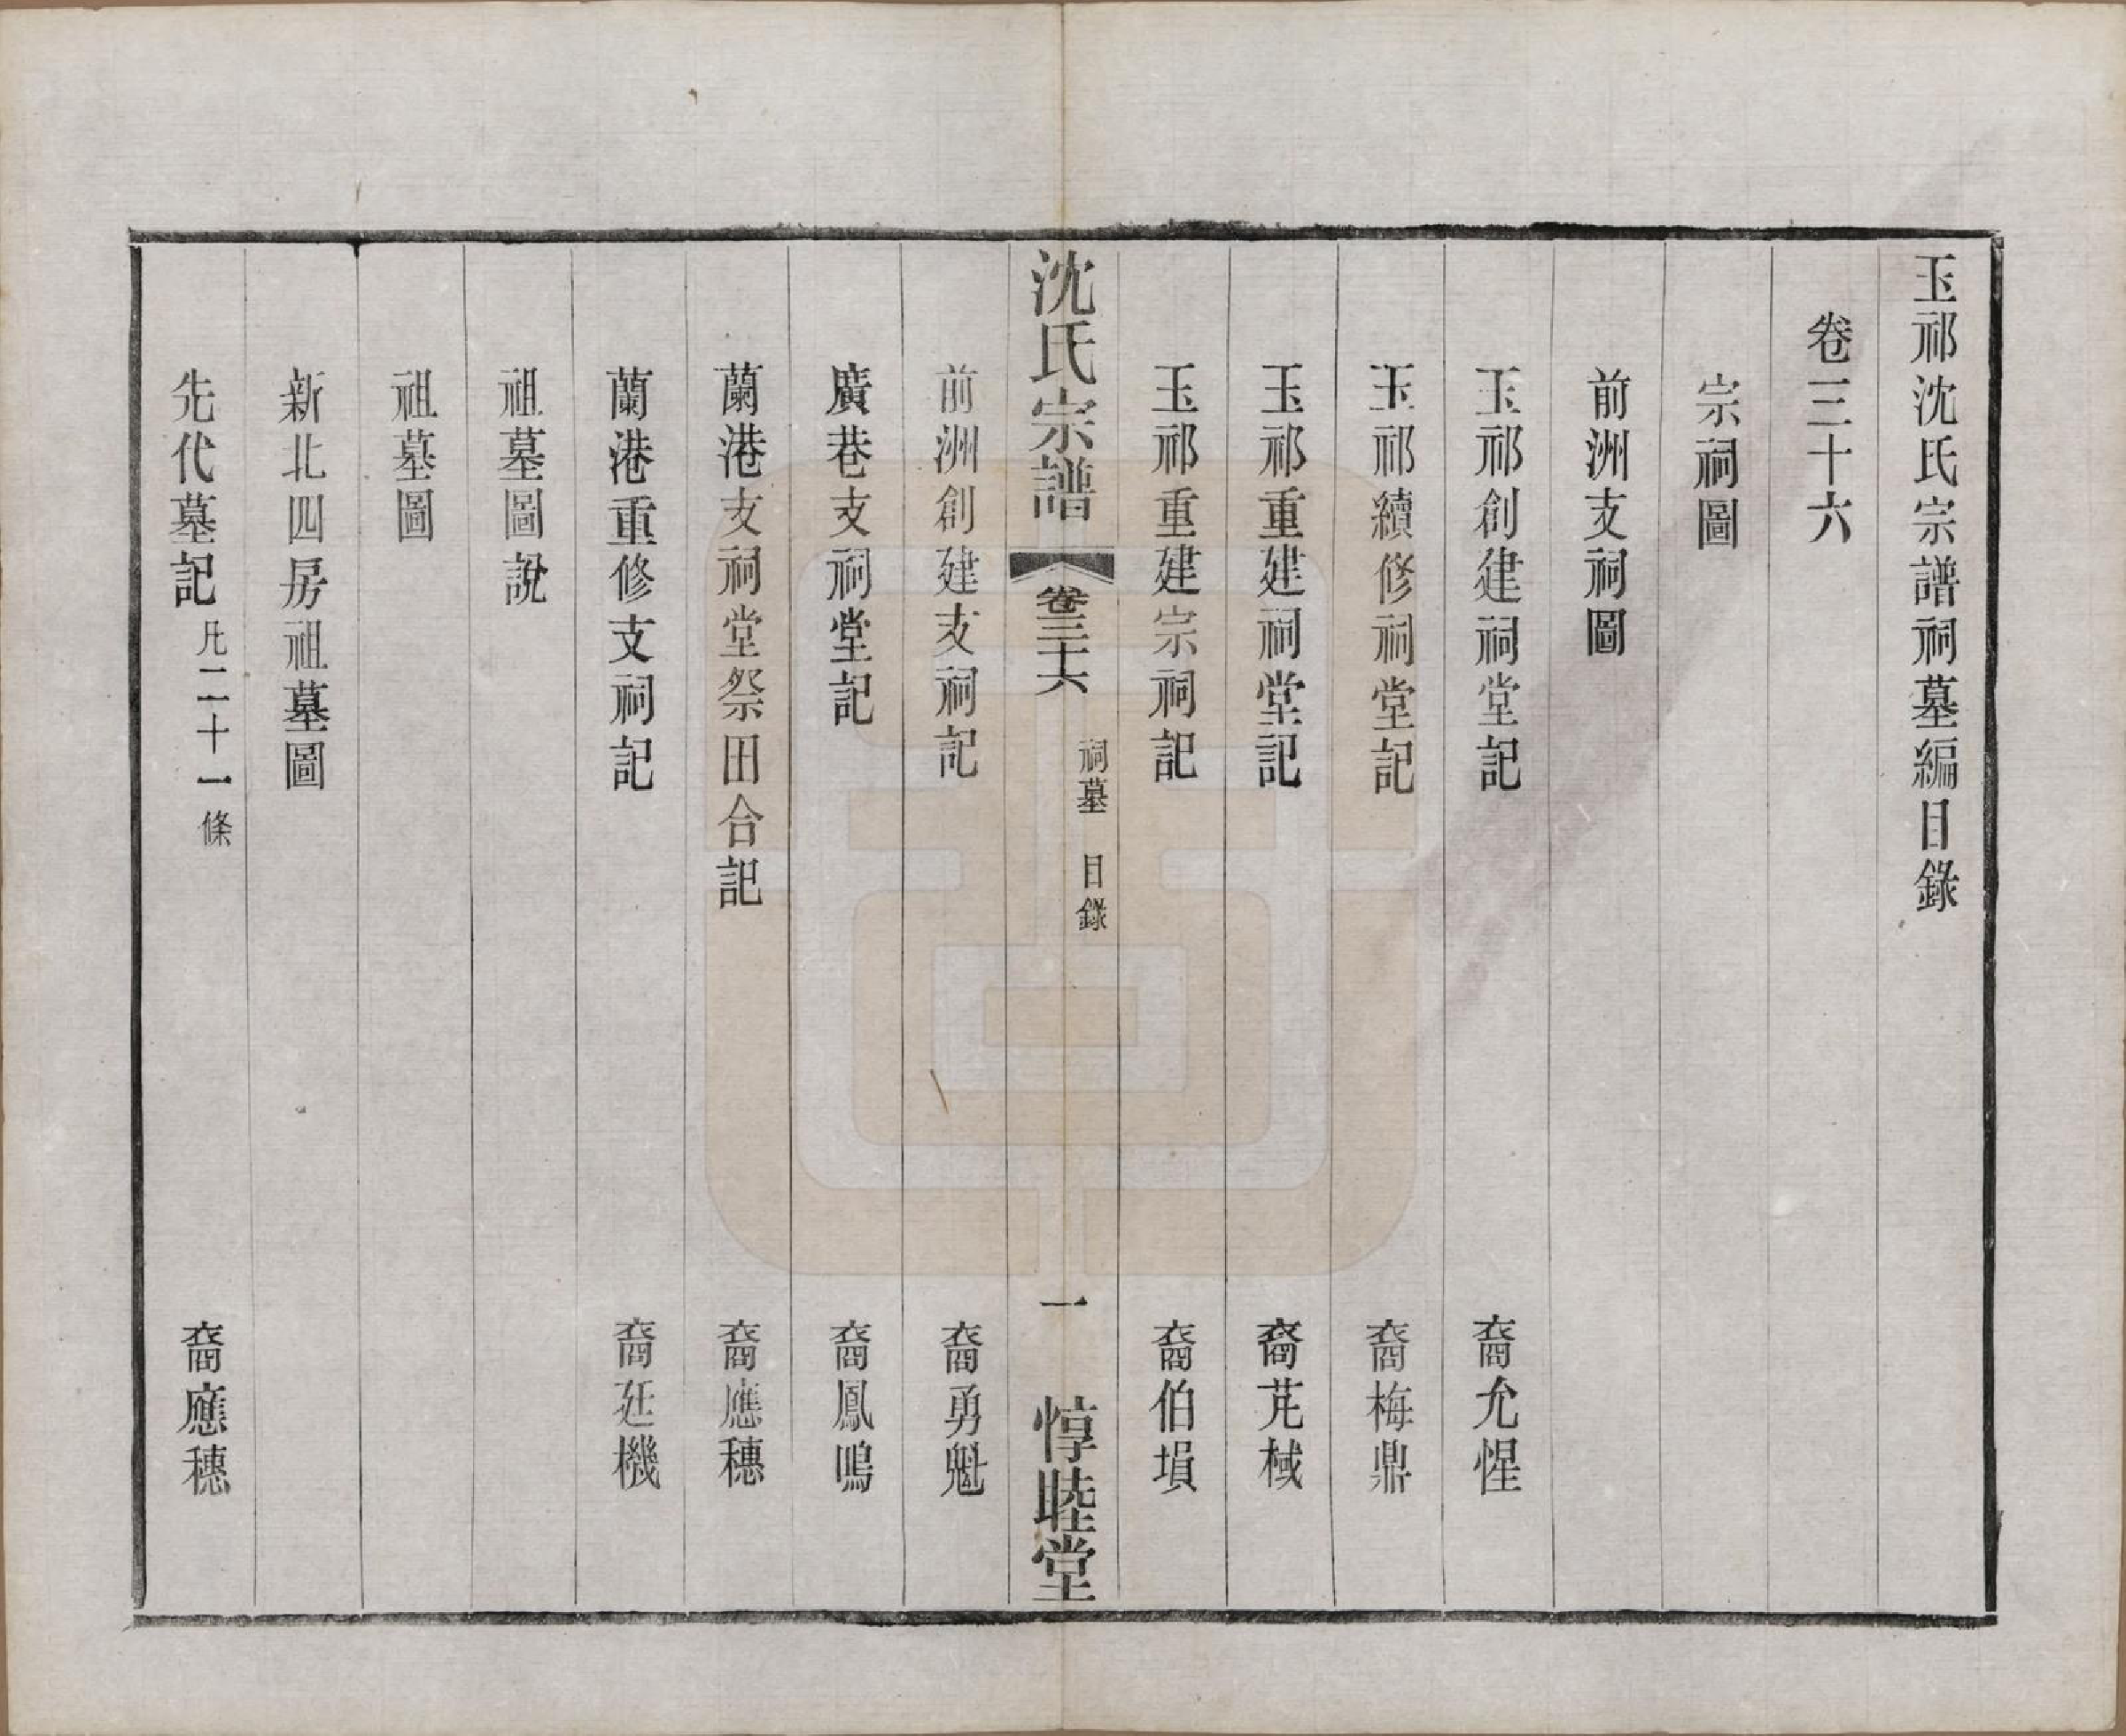 玉祁沈氏宗譜祠墓編目錄
卷三十六
宗祠圖
前洲支祠圖
玉祁創建祠堂記 裔允惺
玉祁續修祠堂記 裔梅鼎
玉祁重建祠堂記 裔芃棫
玉祁重建宗祠記 裔伯塤
沈氏宗譜 卷三十六 祠墓 目錄 一 惇睦堂
前洲創建支祠記 裔勇魁
廣巷支祠堂記 裔鳳鳴
蘭港支祠堂祭田合記 裔應穗
蘭港重修支祠記 裔廷機
祖墓圖說
祖墓圖
新北四房祖墓圖
先代墓記 凡二十一條 裔應穗